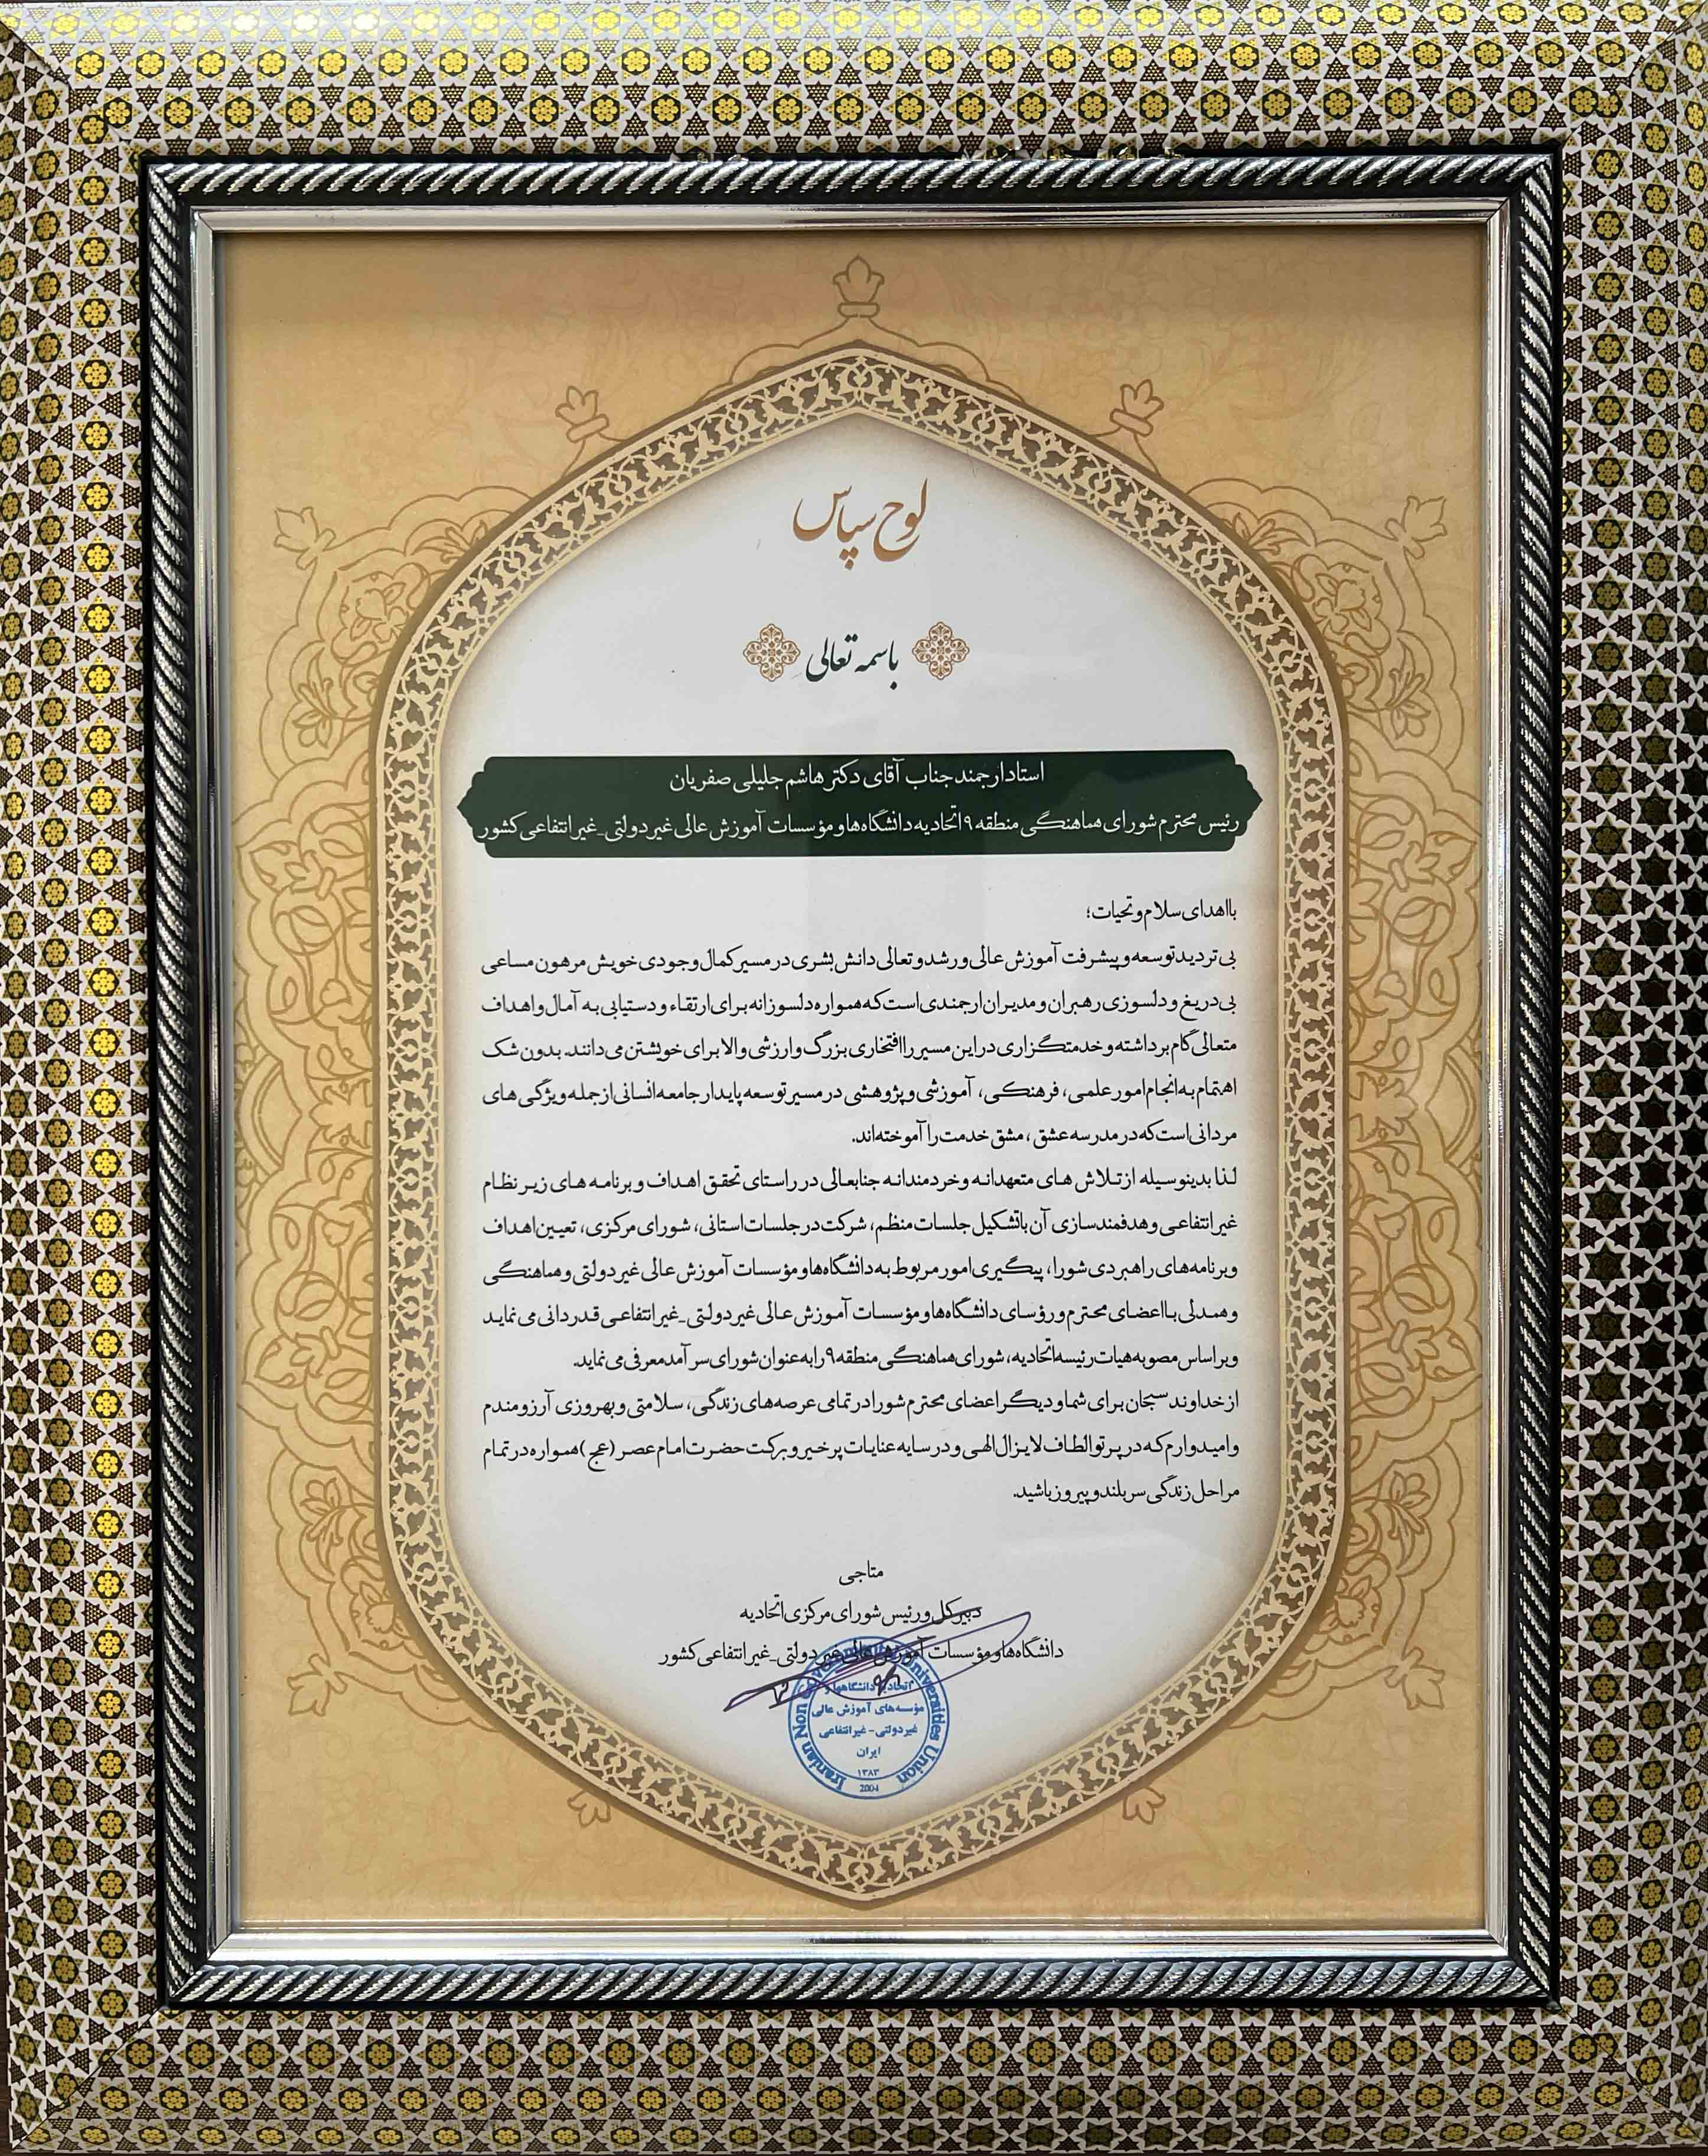 لوح سپاس
باسمه تعالی
استاد ارجمند جناب آقای دکتر هاشم جلیلی صفریان
رئیس محترم شورای هماهنگی منطقه ۹ اتحادیه دانشگاه‌ها و مؤسسات آموزش عالی غیردولتی_غیرانتفاعی کشور
با اهدای سلام و تحیات؛
بی تردید توسعه و پیشرفت آموزش عالی و رشد و تعالی دانش بشری در مسیر کمال وجودی خویش مرهون مساعی
بی‌دریغ و دلسوزی رهبران و مدیران ارجمندی است که همواره دلسوزانه برای ارتقاء و دستیابی به آمال و اهداف
متعالی گام برداشته و خدمتگزاری در این مسیر را افتخاری بزرگ و ارزشی والا برای خویشتن می‌دانند. بدون شک
اهتمام به انجام امور علمی، فرهنگی، آموزشی و پژوهشی در مسیر توسعه پایدار جامعه انسانی از جمله ویژگی های
مردانی است که در مدرسه عشق، مشق خدمت را آموخته‌اند.
لذا بدینوسیله از تلاش های متعهدانه و خردمندانه جنابعالی در راستای تحقق اهداف و برنامه های زیر نظام
غیرانتفاعی و هدفمندسازی آن با تشکیل جلسات منظم، شرکت در جلسات استانی، شورای مرکزی، تعیین اهداف
و برنامه‌های راهبردی شورا، پیگیری امور مربوط به دانشگاه‌ها و مؤسسات آموزش عالی غیردولتی و هماهنگی
و همدلی با اعضای محترم و رؤسای دانشگاه‌ها و مؤسسات آموزش عالی غیردولتی_غیرانتفاعی قدردانی می نماید
و بر اساس مصوبه هیات رئیسه اتحادیه، شورای هماهنگی منطقه ۹ را به عنوان شورای سرآمد معرفی می نماید.
از خداوند سبحان برای شما و دیگر اعضای محترم شورا در تمامی عرصه های زندگی، سلامتی و بهروزی آرزومندم
و امیدوارم که در پرتو الطاف لایزال الهی و در سایه عنایات پر خیر و برکت حضرت امام عصر (عج) همواره در تمام
مراحل زندگی سربلند و پیروز باشید.
متاجی
دبیرکل و رئیس شورای مرکزی اتحادیه
دانشگاه‌ها و مؤسسات آموزش عالی غیردولتی_غیرانتفاعی کشور
اتحادیه دانشگاهها و
مؤسسه‌های آموزش عالی
غیردولتی - غیرانتفاعی
ایران
۱۳۸۳
2004
Iranian Non Universities Union